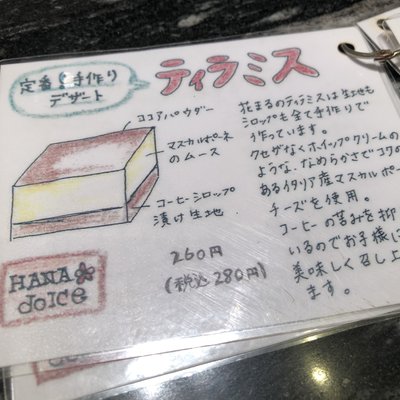 定番!手作り
デザート
ティラミス
ココアパウダー
マスカルポーネ
のムース
コーヒーシロップ
漬け生地
HANA
dolce
260円
(税込280円)
花まるのティラミスは生地も
シロップも全て手作りで
作っています。
クセがなくホイップクリームの
ような、なめらかさでコクの
あるイタリア産マスカルポー
チーズを使用。
コーヒーの苦みを抑
いるのでお子様に
美味しく召し上
ます。